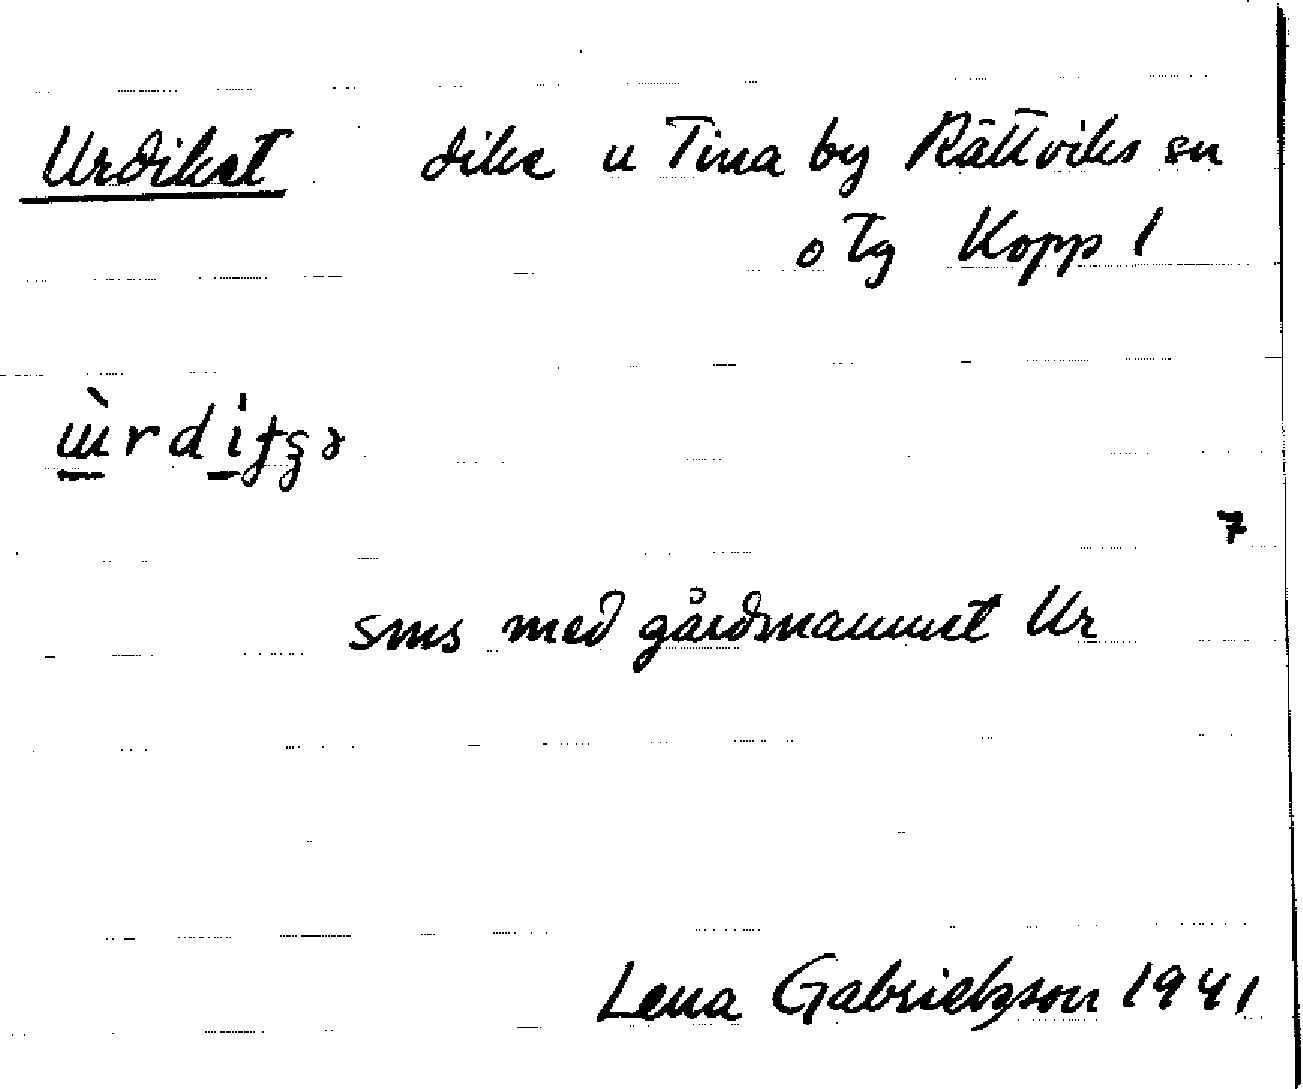 Urdiket dike u Tina by Rättviks sn
o Tg Kopp 1
7
sms med gårdsnamnet Ur
Lena Gabrielsson 1941